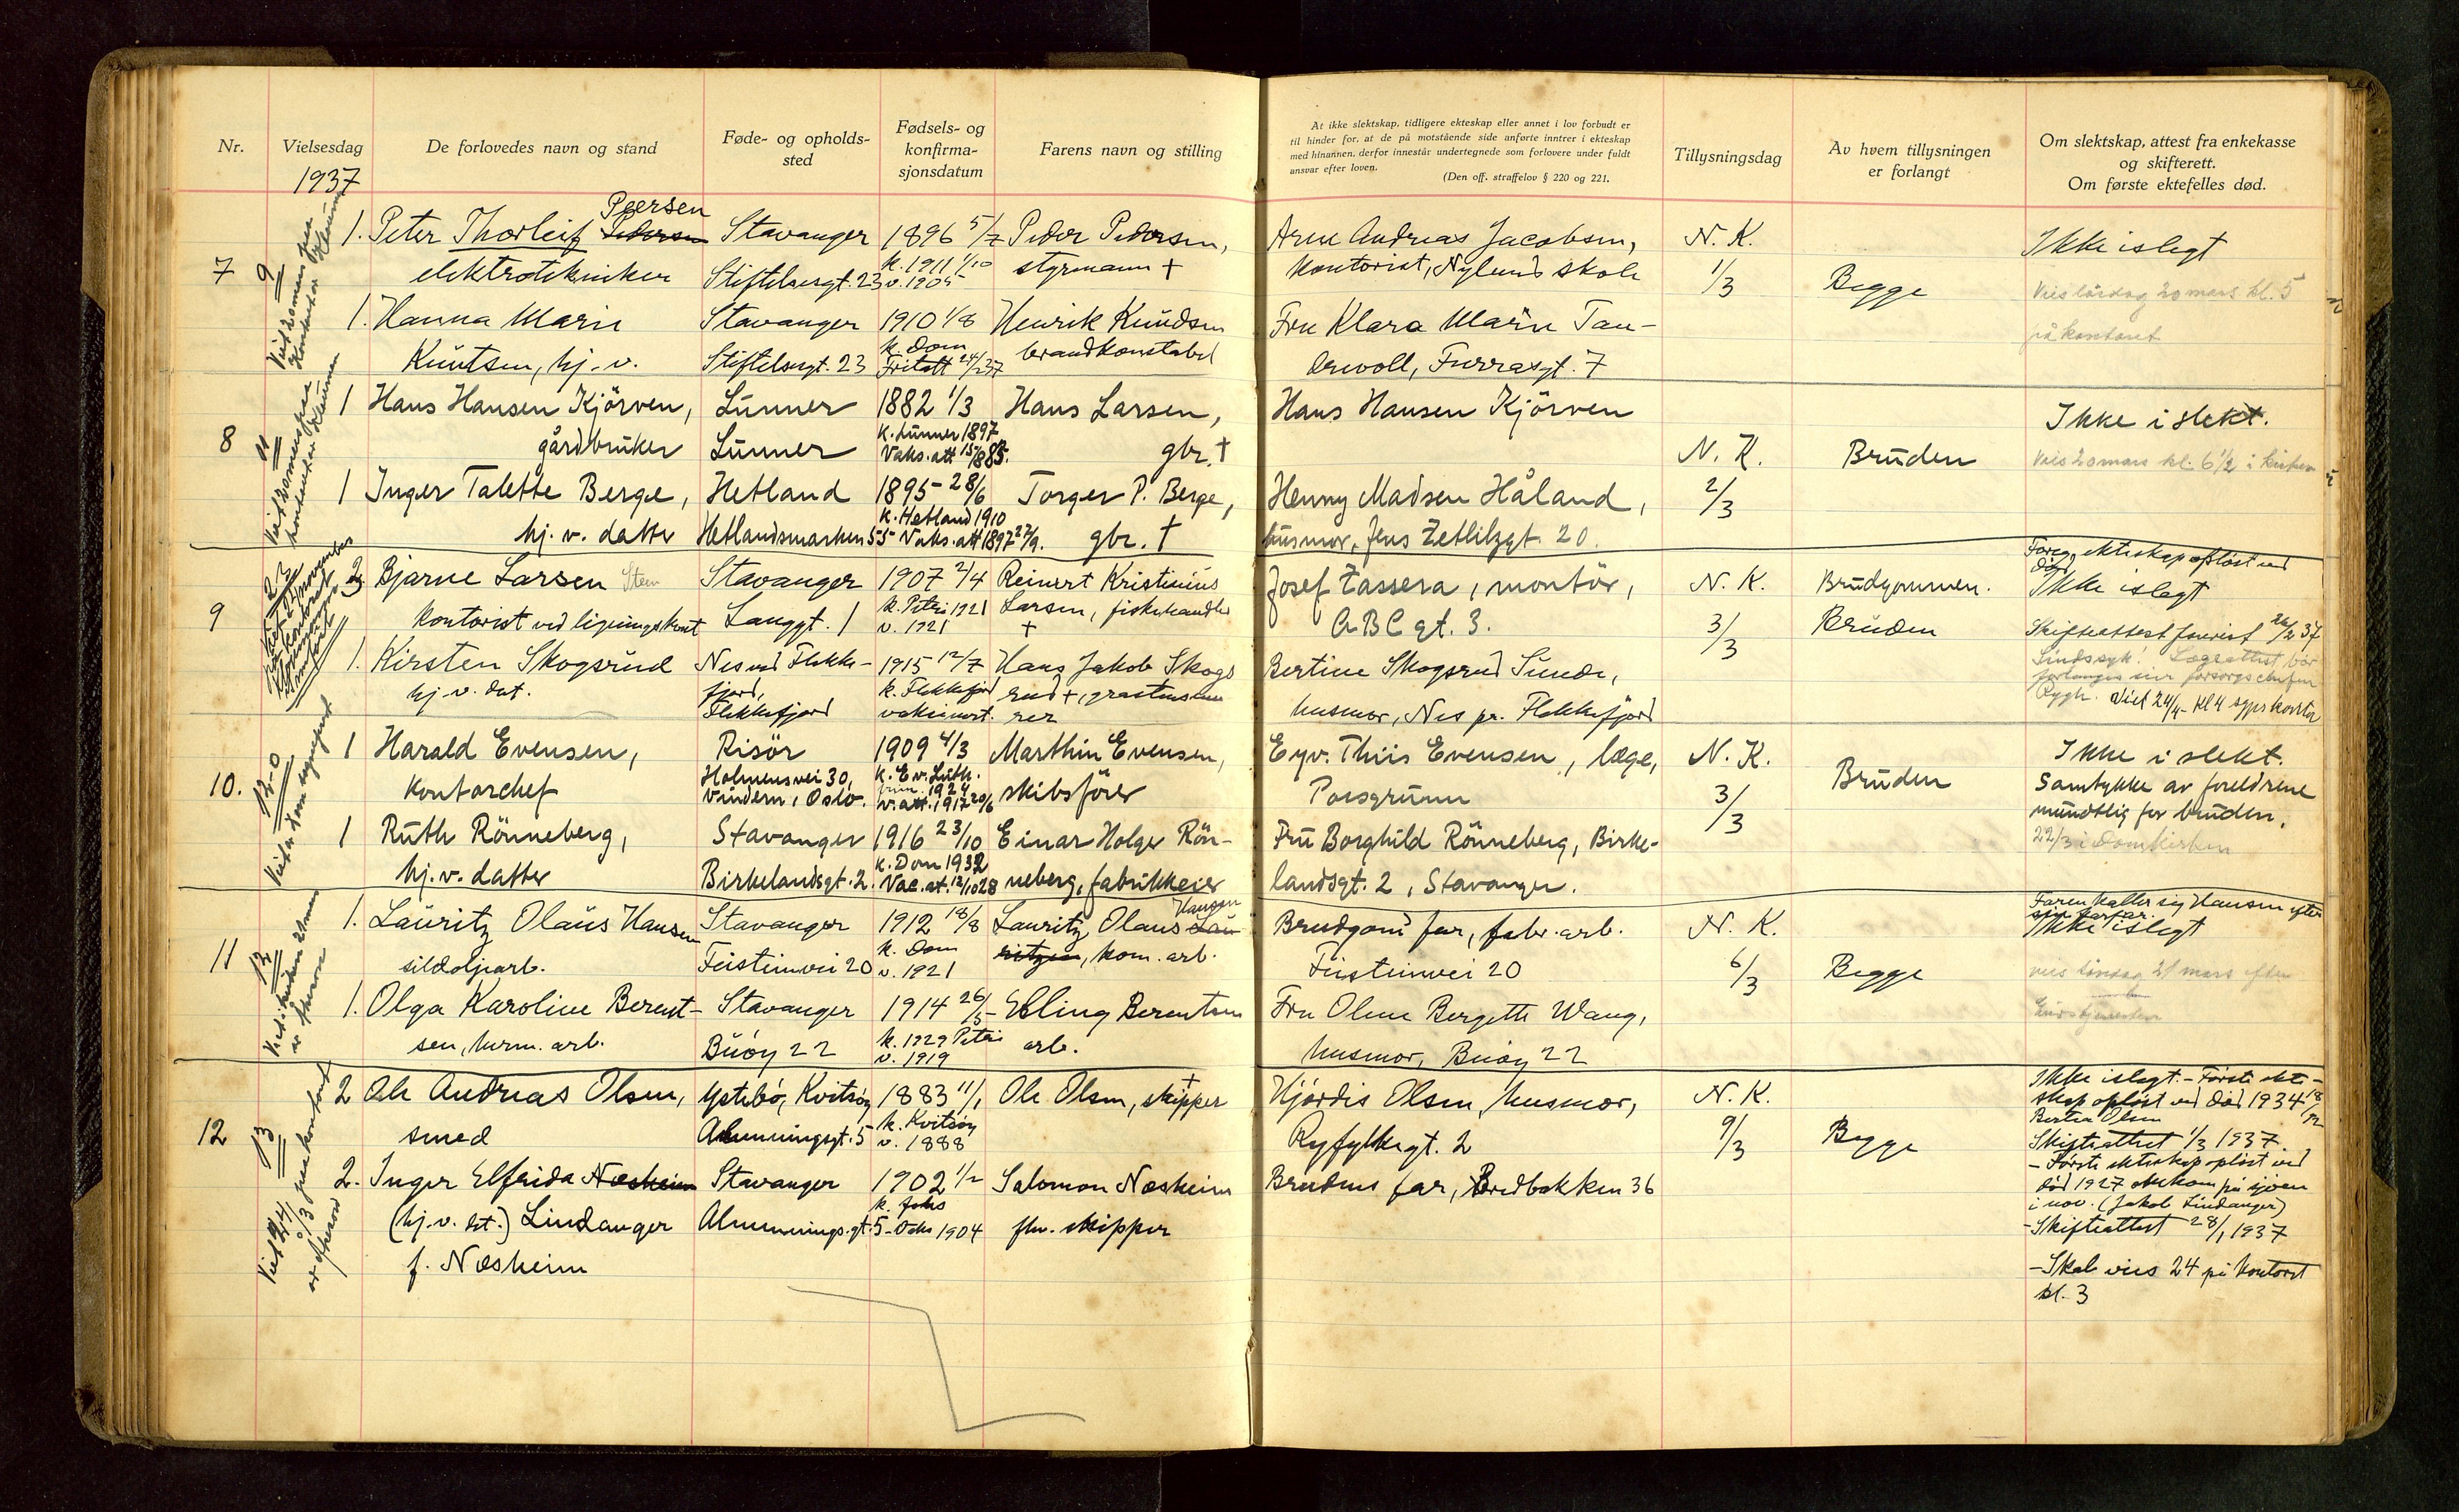 Nr.
Vielsesdag
De forlovedes navn og stand
Føde- og opholds-
sted
Fødsels- og
konfirma-
sjonsdatum
Farens navn og stilling
At ikke slektskap, tidligere ekteskap eller annet i lov forbudt er
til hinder for, at de på motstående side anførte inntrer i ekteskap
med hinannen, derfor innestår undertegnede som forlovere under fuldt
ansvar efter loven.
(Den off. straffelov § 220 og 221.
Tillysningsdag
Av hvem tillysningen
er forlangt
Om slektskap, attest fra enkekasse
og skifterett.
Om første ektefelles død.
1937
7
9
1. Peter Thorleif Pedersen Peersen
elektrotekniker
Stavanger
Stiftelsesgt. 23
1896 5/7
k. 1911 1/10
v. 1905
Peder Pedersen,
styrmann +
Arne Andreas Jacobsen,
kontorist, Nylund skole
N. K.
1/3
Begge
Ikke i slegt
Vies lördag 20 mars kl. 5
på kontoret
1. Hanna Marie
Knutsen, hj. v.
Stavanger
Stiftelsesgt. 23
1910 1/8
k. Dom
Henrik Knudsen
brandkonstabel
Fru Klara Marie Tan-
devoll, Furrasgt. 7
8
11
1 Hans Hansen Kjörven,
gårdbruker
Lunner
Lunner
1882 1/3
k. Lunner 1897
Vaks. att 15/8 85.
Hans Larsen,
gbr. +
Hans Hansen Kjörven
N. K.
2/3
Bruden
Ikke i slekt.
Vies 20 mars kl. 6 1/2 i kirken
1 Inger Talette Berge,
hj. v. datter
Hetland
Hetlandsmarken 55
1895 - 28/6
k. Hetland 1910
Vaks. att 1897 27/9.
Torger P. Berge,
gbr. +
Henny Madsen Håland,
husmor, Jens Zetlitzgt. 20.
9
23
2 Bjarne Larsen
kontorist ved ligningskont
Stavanger
Langgt. 1
1907 2/4
k. Petri 1921
v. 1921
Reinert Kristinius
Larsen, fiskehandler
+
Josef Tassera, montör,
ABC gt. 3.
N. K.
3/3
Brudgommen.
Bruden
Foreg. ekteskap opløst ved
död
Ikke i slegt
Skifteattest forevist 26/2 37
1. Kirsten Skogsrud
hj. v. dat.
Nes ved Flekke-
fjord,
Flekkefjord
1915 12/7
k. Flekkefjord
vaksinert.
Hans Jakob Skogs
rud +,
Bertine Skogsrud Sunde,
husmor, Nes pr. Flekkefjord
Viet 24/4 - kl 4
10.
12-0
1 Harald Evensen,
Kontorchef
Risör
Holmensvei 30,
Vindern, Oslo.
1909 4/3
k. Ev. Luth.
1924
v. att. 1917 20/6
Marthin Evensen,
skibsförer
Eyv. Thiis Evensen, læge,
Porsgrunn
N. K.
3/3
Bruden
Ikke i slekt.
Samtykke av foreldrene
mundtlig for bruden.
22/3 i Domkirken
1 Ruth Rönneberg,
hj. v. datter
Stavanger
Birkelandsgt. 2.
1916 23/10
k. Dom 1932
Vac. at. 12/10 28
Einar Holger Rön-
neberg, fabrikkeier
Fru Borghild Rönneberg, Birke-
landsgt. 2, Stavanger.
11
13
1. Lauritz Olaus Hansen
sildoljearb.
Stavanger
Feisteinvei 20
1912 18/8
k. Dom
v. 1921
Lauritz Olaus Lau Hansen
ritzen, kom. arb.
Brudgoms far, fabr. arb.
Feisteinvei 20
N. K.
6/3
Begge
Faren kaller sig Hansen efter
sin farfar.
Ikke i slegt
vies söndag 21 mars efter
1. Olga Karoline Berent-
sen, herm. arb.
Stavanger
Buöy 22
1914 26/5
k. 1929 Petri
v. 1919
Elling Berentsen
arb.
Fru Olene Bergette Wang,
husmor, Buöy 22
12
13
2 Ole Andreas Olsen,
smed
Ystebö, Kvitsöy
Almenningsgt. 5
1883 11/1
k. Kvitsöy
v. 1888
Ole Olsen, skipper +
Hjördis Olsen, husmor,
Ryfylkegt. 2
N. K.
9/3
Begge
Ikke i slegt. - Förste ekte-
skap oplöst ved död 1934 18/12
Bertea Olsen
Skifteattest 1/3 1937.
- Förste ekteskap oplöst ved
död 1927 omkom på sjöen
i nov. (Jakob Lindanger)
- Skifteattest 28/1 1937
- Skal vies 24 på kontoret
kl. 3
2. Inger Elfrida Næsheim
(hj. v. dt.) Lindanger
f. Næsheim
Stavanger
Almenningsgt. 5
1902 1/2
k. Johs
1904
Salomon Næsheim
fhv. skipper
Brudens far, Bredbakken 36